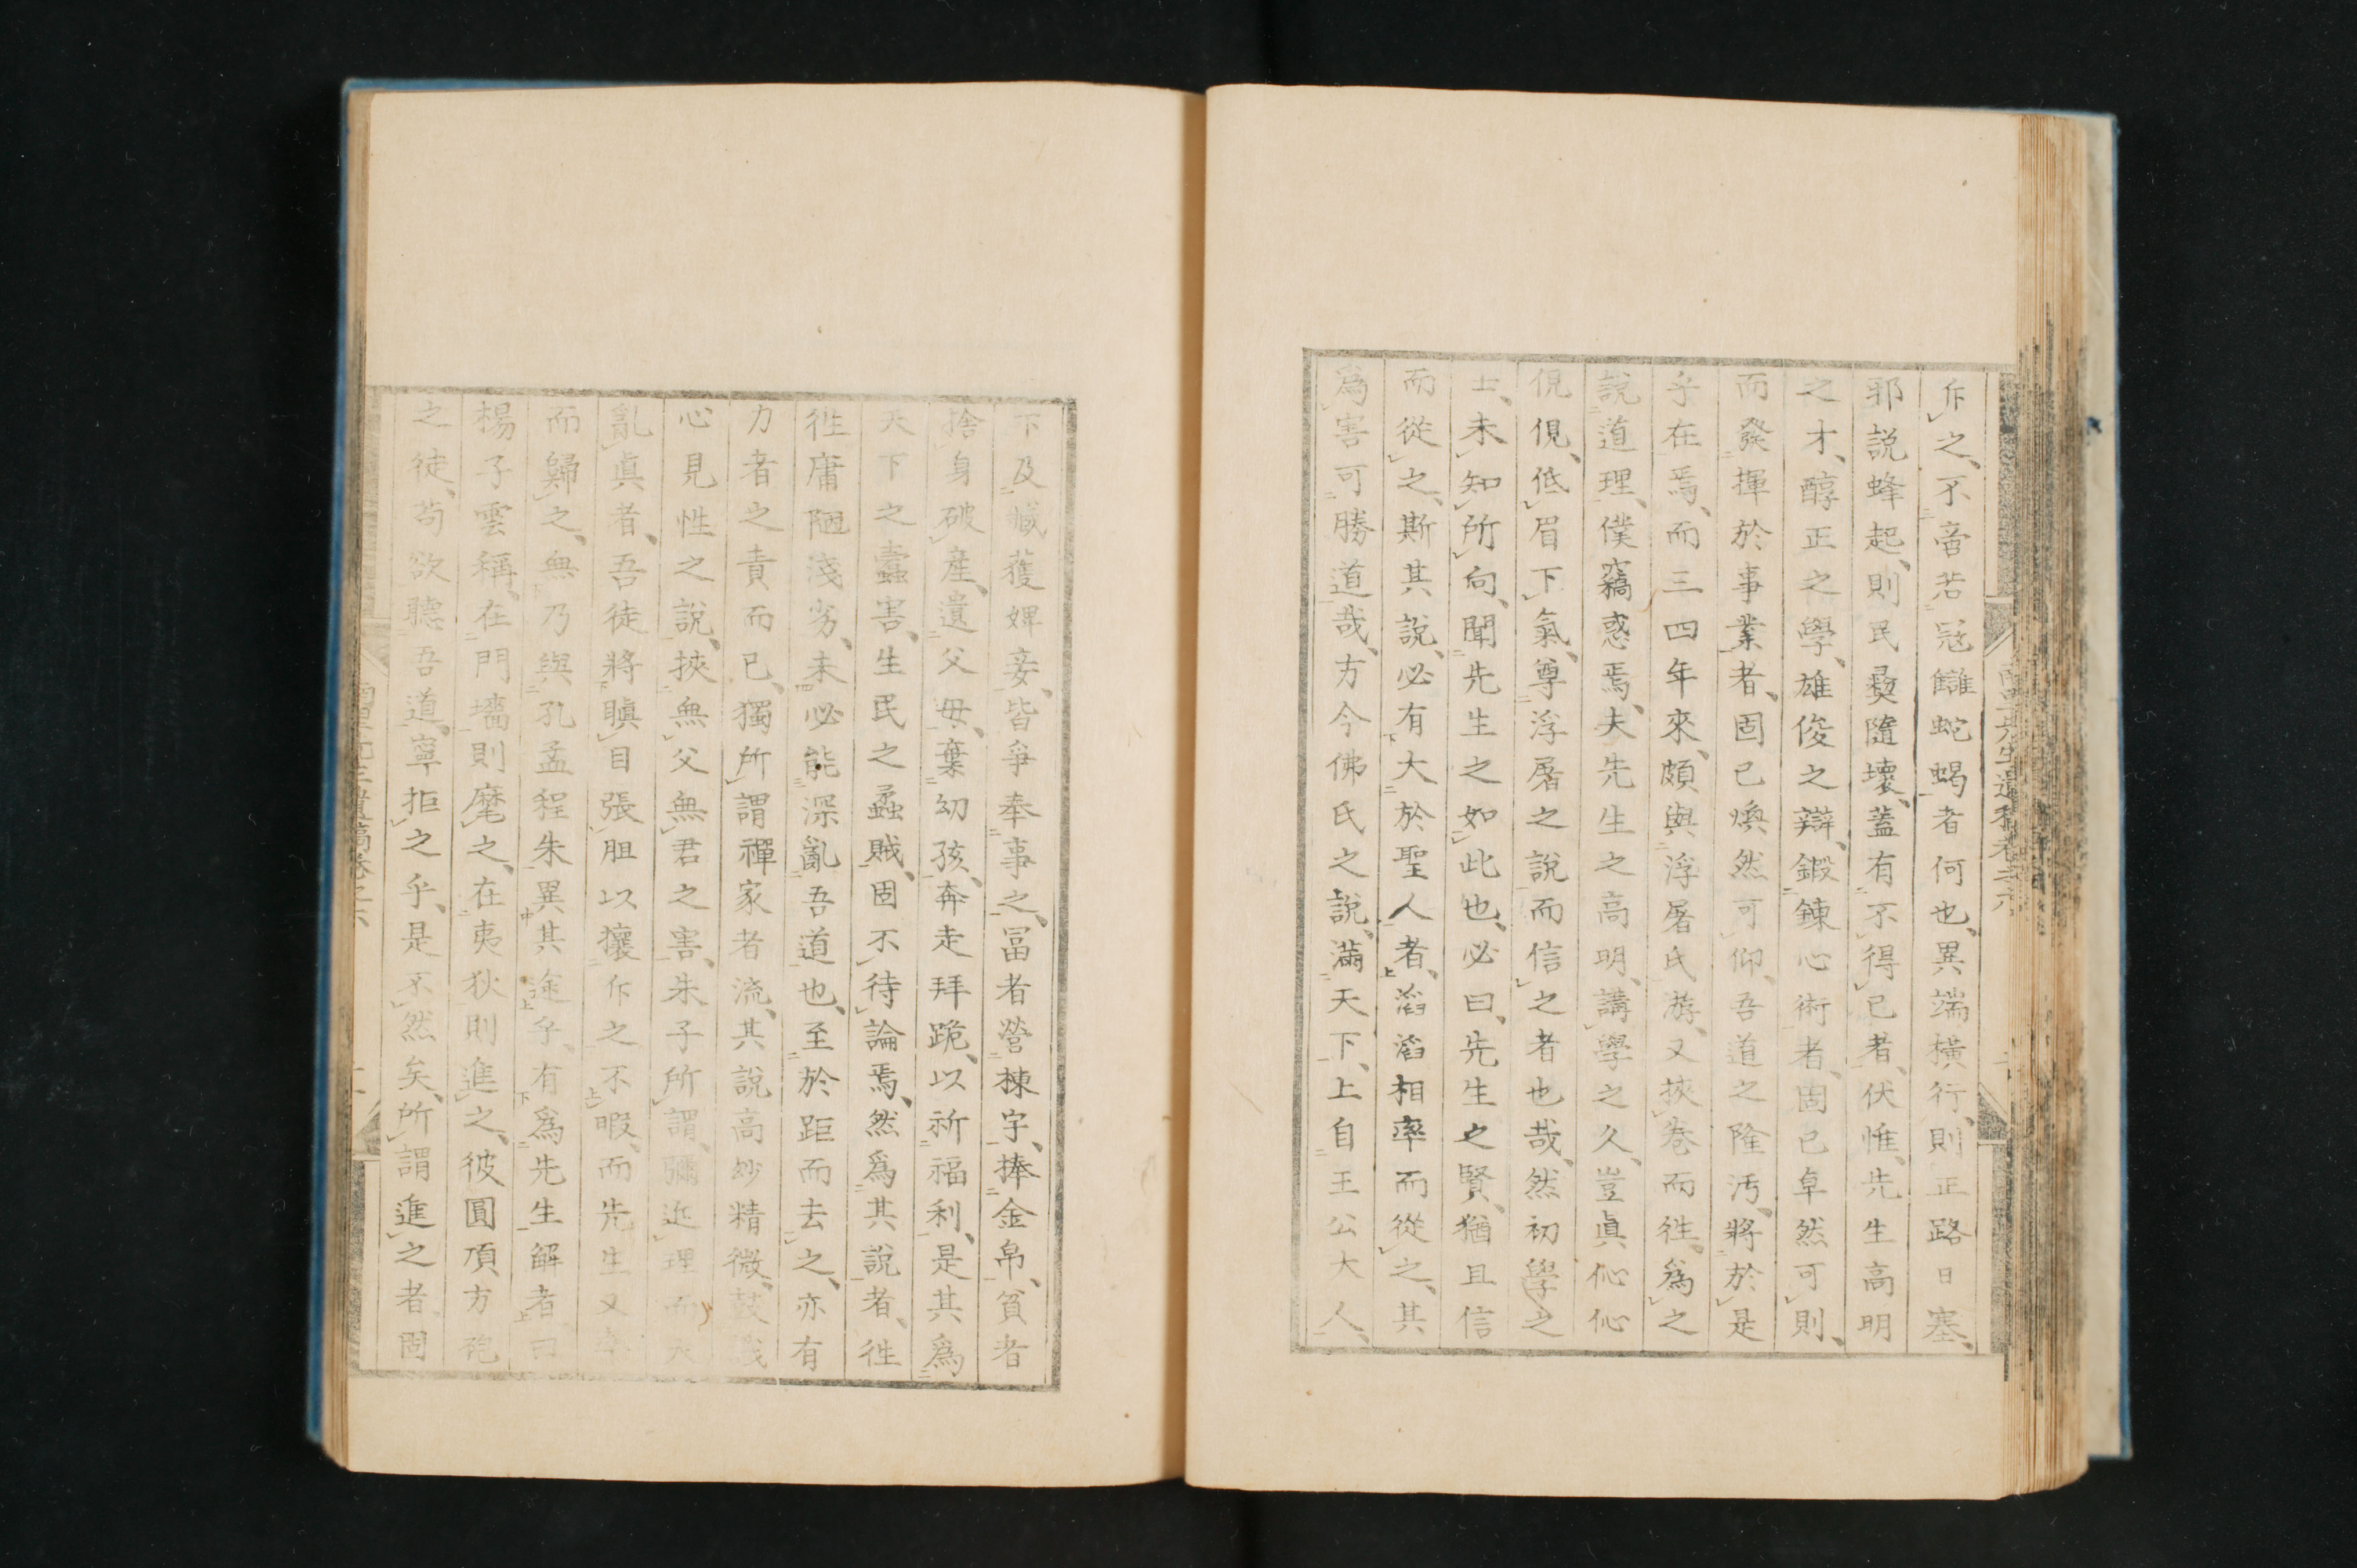 斥之、不啻若冦讎蛇蝎者何也、異端橫行、則正路日塞、
邪説蜂起、則民彛隨壞、蓋有不得已者、伏惟先生高明
之才、醇正之學、雄俊之辯、鍛鍊心術者、固已卓然可則、
而發揮於事業者、固已煥然可仰、吾道之隆汚、將於是
乎在焉、而三四年來、頗與浮屠氏游、又挾卷而徃、爲之
説道理、僕竊惑焉、夫先生之高明、講學之久、豈眞伈伈
俔俔、低眉下氣、尊浮屠之說而信之者也哉、然初學之
士、未知所向、聞先生之如此也、必曰、先生之賢、猶且信
而從之、斯其說、必有大於聖人者、滔滔相率而從之、其
爲害可勝道哉、方今佛氏之說、滿天下、上自王公大人、
下及臧獲婢妾、皆爭奉事之、冨者營棟宇、捧金帛、貧者
捨身破産、遺父母、棄幼孩、奔走拜跪、以祈福利、是其爲
天下之蠹害、生民之蟊賊、固不待論焉、然爲其說者、徃
徃庸陋淺劣、未必能深亂吾道也、至於距而去之、亦有
力者之責而已、獨所謂禪家者流、其說高妙精微、鼓
心見性之說、挾無父無君之害、朱子所謂、彌近理而大
亂眞者、吾徒將瞋目張胆以攘斥之不暇、而先生又
而歸之、無乃與孔孟程朱異其途乎、有爲先生解者曰
楊子雲稱、在門墻則麾之、在夷狄則進之、彼圓頂方袍
之徒、苟欲聽吾道、寧拒之乎、是不然矣、所謂進之者、固